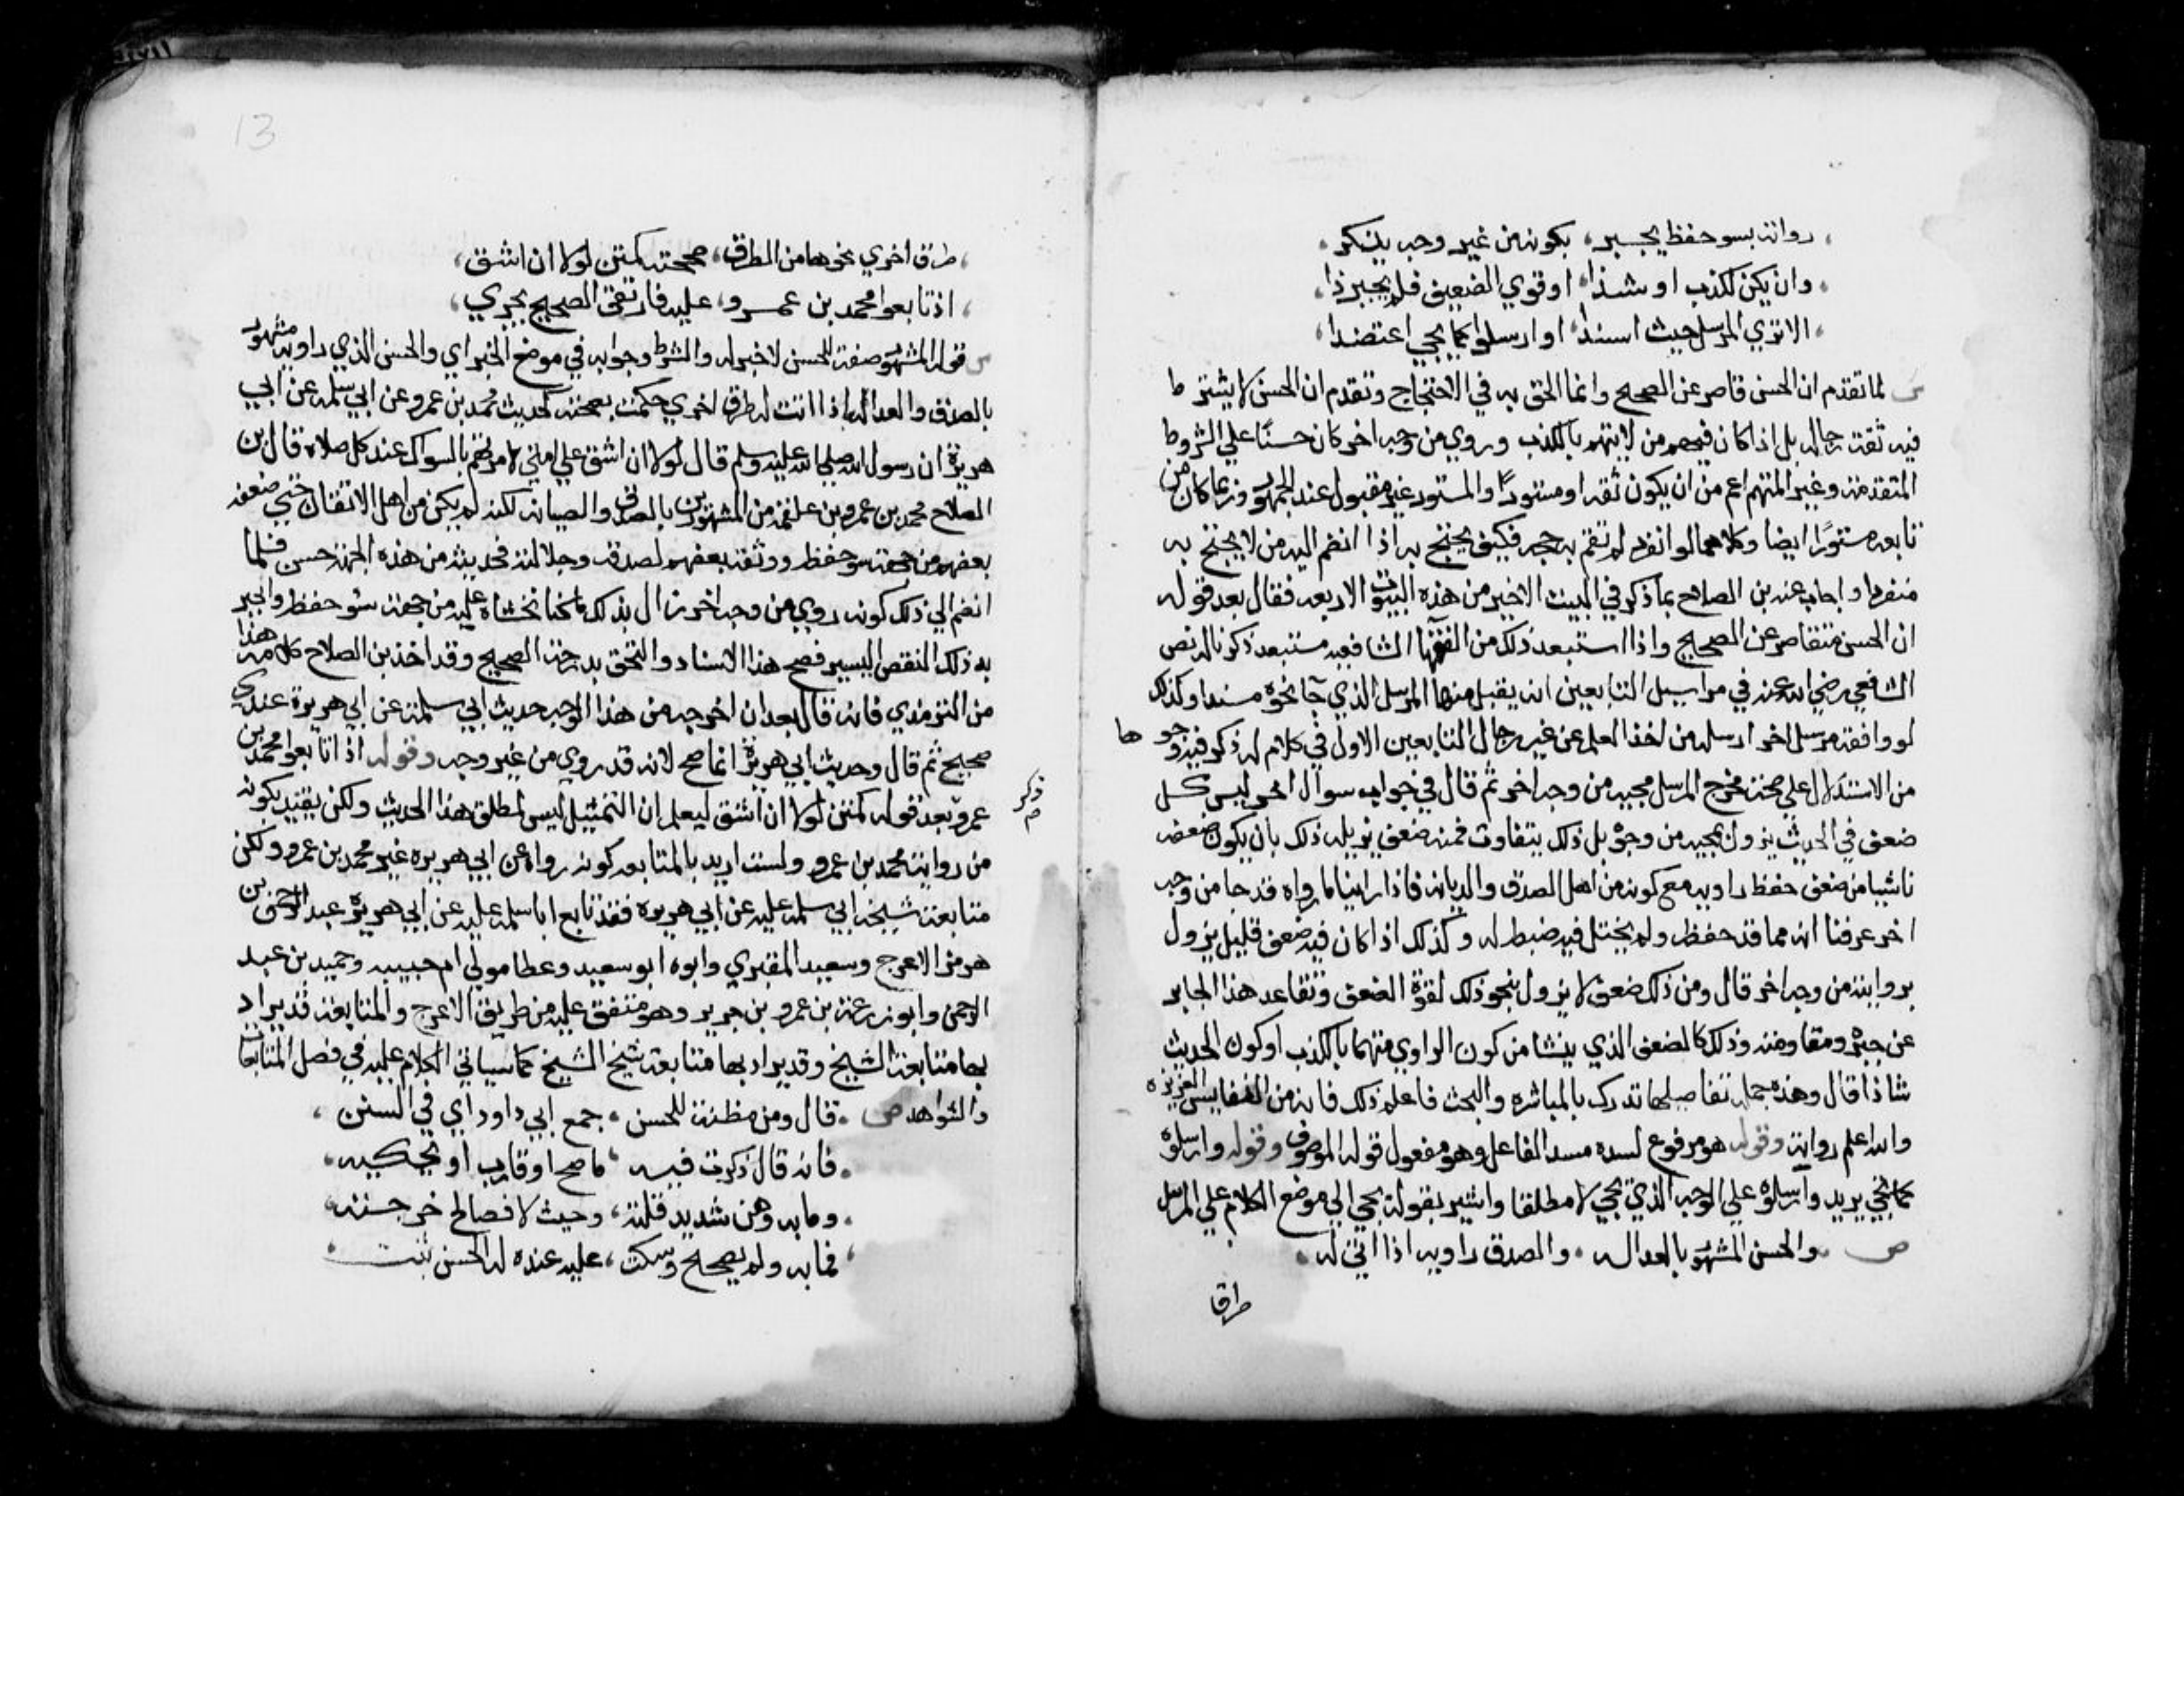 رواته بسو حفظ يجبر، بكونه من غير وجه يذكر
وان يكن لكذب او شذا، او قوي الضعيف فلم يجبر ذا
الا تري المرسل حيث اسندا، او ارسلوا كما يجي اعتضدا
ش لما تقدم ان الحسن قاصر عن الصحيح وانما الحق به في الاحتجاج وتقدم ان الحسن لا يشترط
فيه ثقة رجاله بل اذا كان فيهم من لا يتهم بالكذب وروي من وجه اخر كان حسنًا علي الشروط
المتقدمة وغير المتهم اعم من ان يكون ثقة او مستورًا والمستور غير مقبول عند الجمهور وربما كان من
تابعه مستورًا ايضا وكلاهما لو انفرد لم تقم به حجة فكيف يحتج به اذا انضم اليه من لا يحتج به
منفردا واجاب عنه بن الصلاح بما ذكر في البيت الاخير من هذه البيوت الاربعه فقال بعد قوله
ان الحسن متقاصر عن الصحيح واذا استبعد ذلك من الفقها الشافعيه مستبعد ذكرنا له نص
الشافعي رضي الله عنه في مراسيل التابعين انه يقبل منها المرسل الذي جا نحوه مسندا وكذلك
لو وافقه مرسل اخر ارسله من اخذ العلم عن غير رجال التابعين الاول في كلام له ذكر فيه وجوها
من الاستدلال علي صحة مخرج المرسل مجيه من وجه اخر ثم قال في جواب سوال اخر ليس كل
ضعف في الحديث يزول بمجيه من وجوه بل ذلك يتفاوت فمنه ضعف يزيله ذلك بان يكون ضعفه
ناشيا من ضعف حفظ راويه مع كونه من اهل الصدق والديانه فاذا راينا ما رواه قد جا من وجه
اخر عرفنا انه مما قد حفظه ولم يختل فيه ضبطه له وكذلك اذا كان فيه ضعف قليل يزول
بروايته من وجه اخر قال ومن ذلك ضعف لا يزول بنحو ذلك لقوة الضعف وتقاعد هذا الجابر
عن جبره ومقاومته وذلك كالضعف الذي ينشا من كون الراوي متهما بالكذب او كون الحديث
شاذا قال وهذه جملة تفاصيلها تدرك بالمباشره والبحث فاعلم ذلك فانه من النفايس العزيزه
والله اعلم رواته وقوله هو مرفوع لسده مسد الفاعل وهو مفعول قوله الموصوف وقوله وارسلوه
كما يجي يريد وارسلوه علي الوجه الذي يجي لا مطلقا واشير بقوله يجي الي موضع الكلام علي المرسل
ص والحسن المشهور بالعداله، والصدق راويه اذا اتي له
طرقا
13
طرق اخري نحوها من الطرق، صححته كمتن لولا ان اشق
اذ تابعوا محمد بن عمرو، عليه فارتقي الصحيح يجري
ش قوله المشهور صفة للحسن لا خبر له والشرط وجوابه في موضع الخبر اي والحسن الذي راويه مشهور
بالصدق والعداله اذا اتت له طرق اخري حكمت بصحته كحديث محمد بن عمرو عن ابي سلمة عن ابي
هريرة ان رسول الله صلي الله عليه وسلم قال لولا ان اشق علي امتي لامرتهم بالسواك عند كل صلاة قال بن
الصلاح محمد بن عمرو بن علقمة من المشهورين بالصدق والصيانه لكنه لم يكن من اهل الاتقان حتي ضعفه
بعضهم من جهة سو حفظه ووثقه بعضهم لصدقه وجلالته فحديثه من هذه الجهة حسن فلما
انضم الي ذلك كونه روي من وجه اخر زال بذلك ما كنا نخشاه عليه من جهة سو حفظه وانجبر
به ذلك النقص اليسير فصح هذا الاسناد والتحق بدرجة الصحيح وقد اخذ بن الصلاح كلامه هذا
من الترمذي فانه قال بعد ان اخرجه من هذا الوجه حديث ابي سلمة عن ابي هريرة عندي
صحيح ثم قال وحديث ابي هريرة انما صح لانه قد روي من غير وجه وقوله اذ تابعوا محمد بن
ذكر
م
عمرو بعد قوله كمتن لولا ان اشق ليعلم ان التمثيل ليس لمطلق هذا الحديث ولكن بقيد كونه
من رواية محمد بن عمرو ولست اريد بالمتابعه كونه رواه عن ابي هريره غير محمد بن عمرو ولكن
متابعة شيخه ابي سلمة عليه عن ابي هريره فقد تابع ابا سلمة عليه عن ابي هريرة عبد الرحمن بن
هرمز الاعرج وسعيد المقبري وابوه ابو سعيد وعطا مولي ام حبيبه وحميد بن عبد
الرحمن وابو زرعة بن عمرو بن جرير وهو متفق عليه من طريق الاعرج والمتابعة قد يراد
بها متابعة الشيخ وقد يراد بها متابعة شيخ الشيخ كما سياتي الكلام عليه في فصل المتابعات
والشواهد ص قال ومن مظنة للحسن، جمع ابي داود اي في السنن
فانه قال ذكرت فيه، ما صح او قارب او يحكيه
وما به وهن شديد قلته، وحيث لا فصالح خرجته
فما به ولم يصحح وسكت، عليه عنده له الحسن ثبت